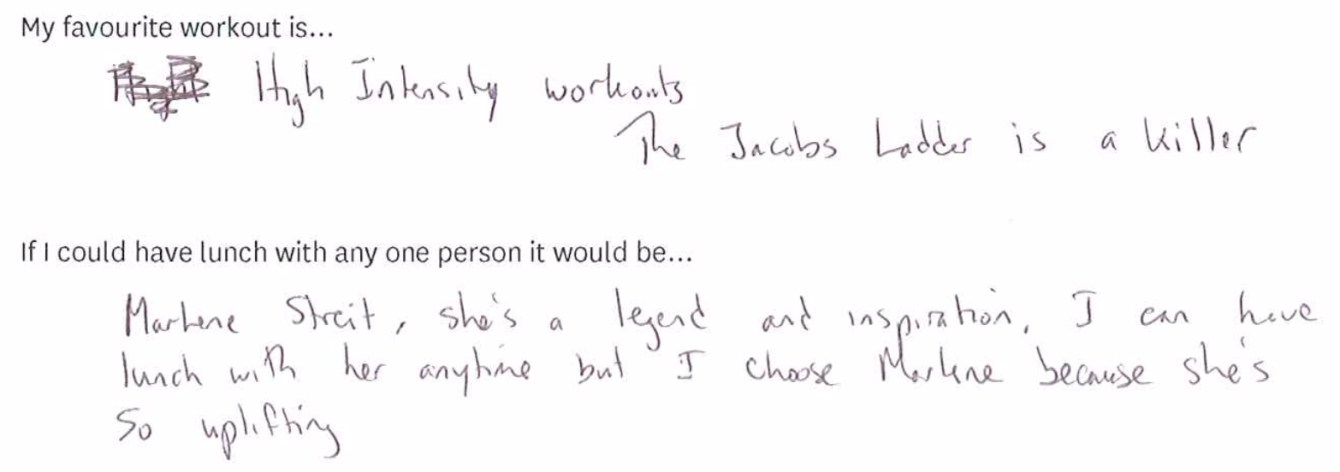 My favourite workout is...
High Intensity workouts
The Jacobs Ladder is a killer
If I could have lunch with any one person it would be...
Marlene Streit, she's a legend and inspiration, I can have
lunch with her anytime but I choose Marlene because she's
so uplifting